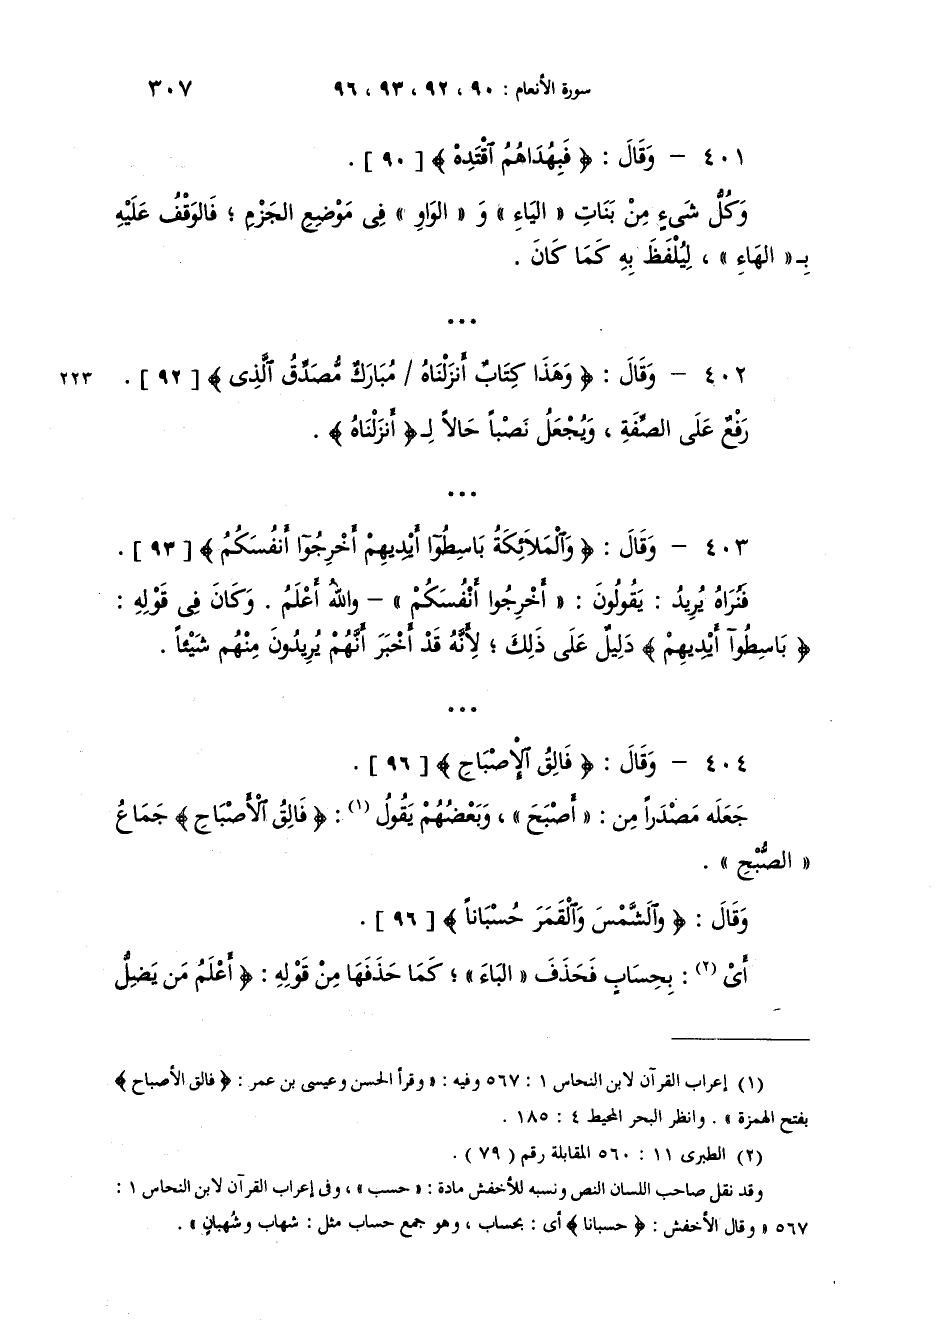 سورة الأنعام : ٩٠ ، ٩٢ ، ٩٣ ، ٩٦ ٣٠٧
٤٠١ – وَقَالَ : ﴿ فَبِهُدَاهُمُ ٱقْتَدِهْ ﴾ [ ٩٠ ] .
وَكُلُّ شَىءٍ مِنْ بَنَاتِ « اليَاءِ » وَ « الوَاوِ » فِى مَوْضِعِ الجَزْمِ ؛ فَالوَقْفُ عَلَيْهِ
بِـ« الهَاءِ » ، لِيُلْفَظَ بِهِ كَمَا كَانَ .
•••
٤٠٢ – وَقَالَ : ﴿ وَهَذَا كِتَابٌ أَنزَلْنَاهُ / مُبَارَكٌ مُّصَدِّقُ ٱلَّذِى ﴾ [ ٩٢ ] . ٢٢٣
رَفْعٌ عَلَى الصِّفَةِ ، وَيُجْعَلُ نَصْباً حَالاً لِـ﴿ أَنزَلْنَاهُ ﴾ .
•••
٤٠٣ – وَقَالَ : ﴿ وَٱلْمَلاَئِكَةُ بَاسِطُوٓا أَيْدِيهِمْ أَخْرِجُوٓا أَنفُسَكُمُ ﴾ [ ٩٣ ] .
فَنُرَاهُ يُرِيدُ : يَقُولُونَ : « أَخْرِجُوا أَنْفُسَكُمْ » – واللهُ أَعْلَمُ . وَكَانَ فِى قَوْلِهِ :
﴿ بَاسِطُوٓا أَيْدِيهِمْ ﴾ دَلِيلٌ عَلَى ذَلِكَ ؛ لِأَنَّهُ قَدْ أَخْبَرَ أَنَّهُمْ يُرِيدُونَ مِنْهُم شَيْئاً .
•••
٤٠٤ – وَقَالَ : ﴿ فَالِقُ ٱلْإِصْبَاحِ ﴾ [ ٩٦ ] .
جَعَلَه مَصْدَراً مِن : « أَصْبَحَ » ، وَبَعْضُهُمْ يَقُولُ (١) : ﴿ فَالِقُ ٱلْأَصْبَاحِ ﴾ جَمَاعُ
« الصُّبْحِ » .
وَقَالَ : ﴿ وٱلَشَّمْسَ وَٱلْقَمَرَ حُسْبَاناً ﴾ [ ٩٦ ] .
أَىْ (٢) : بِحِسَابٍ فَحَذَفَ « البَاءَ » ؛ كَمَا حَذَفَهَا مِنْ قَوْلِهِ : ﴿ أَعْلَمُ مَن يَضِلُّ
(١) إعراب القرآن لابن النحاس ١ : ٥٦٧ وفيه : « وقرأ الحسن وعيسى بن عمر : ﴿ فالق الأصباح ﴾
بفتح الهمزة » . وانظر البحر المحيط ٤ : ١٨٥ .
(٢) الطبرى ١١ : ٥٦٠ المقابلة رقم ( ٧٩ ) .
وقد نقل صاحب اللسان النص ونسبه للأخفش مادة : « حسب » ، وفى إعراب القرآن لابن النحاس ١ :
٥٦٧ « وقال الأخفش : ﴿ حسبانا ﴾ أى : بحساب ، وهو جمع حساب مثل : شهاب وشُهبانٍ » .